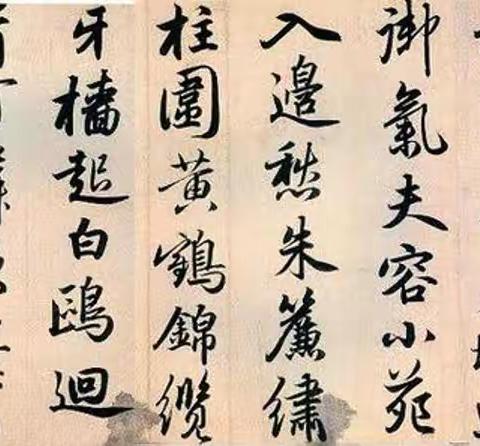 御氣夫容小苑
入邊愁朱簾繡
柱圍黄鶴錦纜
牙檣起白鷗迴